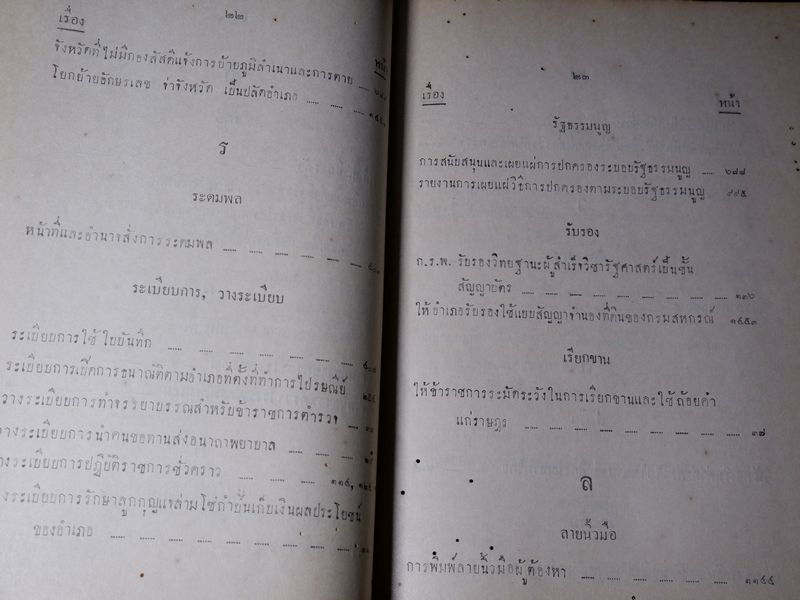 ๒๒
เรื่อง
หน้า
จังหวัดที่ไม่มีกองสัสดีแจ้งการย้ายภูมิลำเนาและการตาย ......
โยกย้ายอักษรเลข จ่าจังหวัด เป็นปลัดอำเภอ ...... ......
ร
ระดมพล
หน้าที่และอำนาจสั่งการระดมพล ...... ...... ...... ......
ระเบียบการ, วางระเบียบ
ระเบียบการใช้ใบบันทึก ...... ...... ...... ...... ...... ......
ระเบียบการเบิกการธนาณัติตามอำเภอที่ตั้งที่ทำการไปรษณีย์
วางระเบียบการทำจรรยาบรรณสำหรับข้าราชการตำรวจ ......
วางระเบียบการนำคนขอทานส่งอนาถาพยาบาล ...... ...... ......
วางระเบียบการปฏิบัติราชการชั่วคราว ...... ......
วางระเบียบการรักษาลูกกุญแจล่ามโซ่กำปั่นเก็บเงินผลประโยชน์
ของอำเภอ ...... ...... ...... ...... ...... ...... ......
๒๓
เรื่อง
หน้า
รัฐธรรมนูญ
การสนับสนุนและเผยแผ่การปกครองระบอบรัฐธรรมนูญ ...... ๖๘๘
รายงานการเผยแผ่วิธีการปกครองตามระบอบรัฐธรรมนูญ ๙๙๕
รับรอง
ก.ร.พ. รับรองวิทยฐานะผู้สำเร็จวิชารัฐศาสตร์เป็นชั้น
สัญญาบัตร ...... ...... ...... ...... ...... ...... ...... ๑๓๖
ให้อำเภอรับรองใช้แบบสัญญาจำนองที่ดินของกรมสหกรณ์ ๑๔๕๓
เรียกขาน
ให้ข้าราชการระมัดระวังในการเรียกขานและใช้ถ้อยคำ
แก่ราษฎร ...... ...... ...... ...... ...... ...... ...... ๓๗
ล
ลายนิ้วมือ
การพิมพ์ลายนิ้วมือผู้ต้องหา ...... ...... ...... ...... ...... ๑๑๔๔